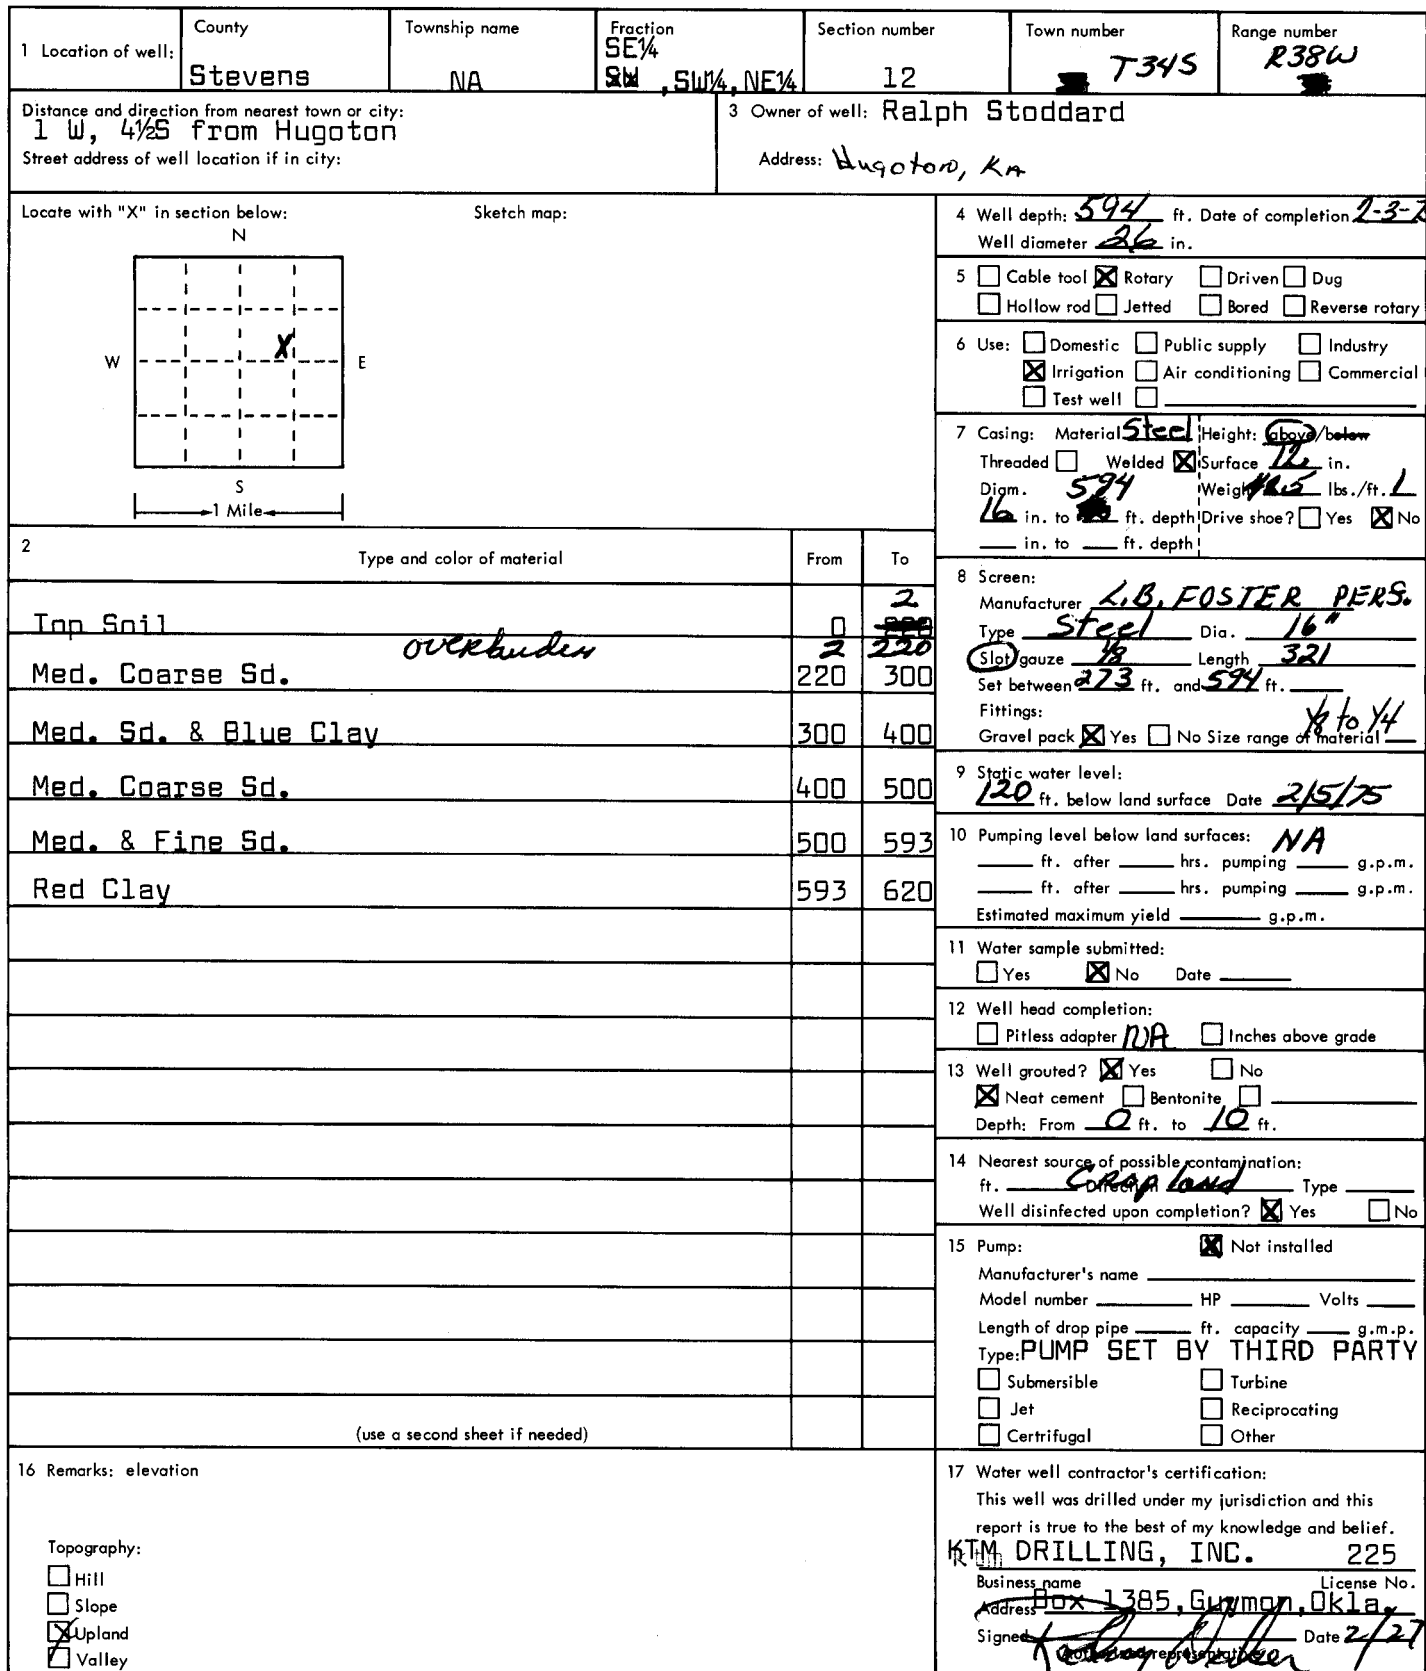 1 Location of well: County Township name Fraction Section number Town number Range number
SE¼
Stevens NA SW , SW¼, NE¼ 12 T34S R38W
Distance and direction from nearest town or city:
1 W, 4½S from Hugoton
Street address of well location if in city:
3 Owner of well: Ralph Stoddard
Address: Hugoton, KA
Locate with "X" in section below: Sketch map:
N
X
W E
S
1 Mile
2 Type and color of material From To
2
Top Soil 0
overburden 2 220
Med. Coarse Sd. 220 300
Med. Sd. & Blue Clay 300 400
Med. Coarse Sd. 400 500
Med. & Fine Sd. 500 593
Red Clay 593 620
(use a second sheet if needed)
16 Remarks: elevation
Topography:
Hill
Slope
Upland
Valley
4 Well depth: 594 ft. Date of completion 2-3-7
Well diameter 26 in.
5 Cable tool Rotary Driven Dug
Hollow rod Jetted Bored Reverse rotary
6 Use: Domestic Public supply Industry
Irrigation Air conditioning Commercial
Test well
7 Casing: Material Steel Height: above/below
Threaded Welded Surface 12 in.
Diam. 594 Weight lbs./ft.
16 in. to ft. depth Drive shoe? Yes No
in. to ft. depth
8 Screen:
Manufacturer L.B. FOSTER PERS.
Type Steel Dia. 16"
Slot/gauze 1/8 Length 321
Set between 273 ft. and 594 ft.
Fittings: 1/8 to 1/4
Gravel pack Yes No Size range of material
9 Static water level:
120 ft. below land surface Date 2/5/75
10 Pumping level below land surfaces: NA
ft. after hrs. pumping g.p.m.
ft. after hrs. pumping g.p.m.
Estimated maximum yield g.p.m.
11 Water sample submitted:
Yes No Date
12 Well head completion:
Pitless adapter NA Inches above grade
13 Well grouted? Yes No
Neat cement Bentonite
Depth: From 0 ft. to 10 ft.
14 Nearest source of possible contamination:
ft. Direction Crop land Type
Well disinfected upon completion? Yes No
15 Pump: Not installed
Manufacturer's name
Model number HP Volts
Length of drop pipe ft. capacity g.m.p.
Type: PUMP SET BY THIRD PARTY
Submersible Turbine
Jet Reciprocating
Certrifugal Other
17 Water well contractor's certification:
This well was drilled under my jurisdiction and this
report is true to the best of my knowledge and belief.
KTM DRILLING, INC. 225
Business name License No.
Address Box 1385, Guymon, Okla.
Signed Date 2/27